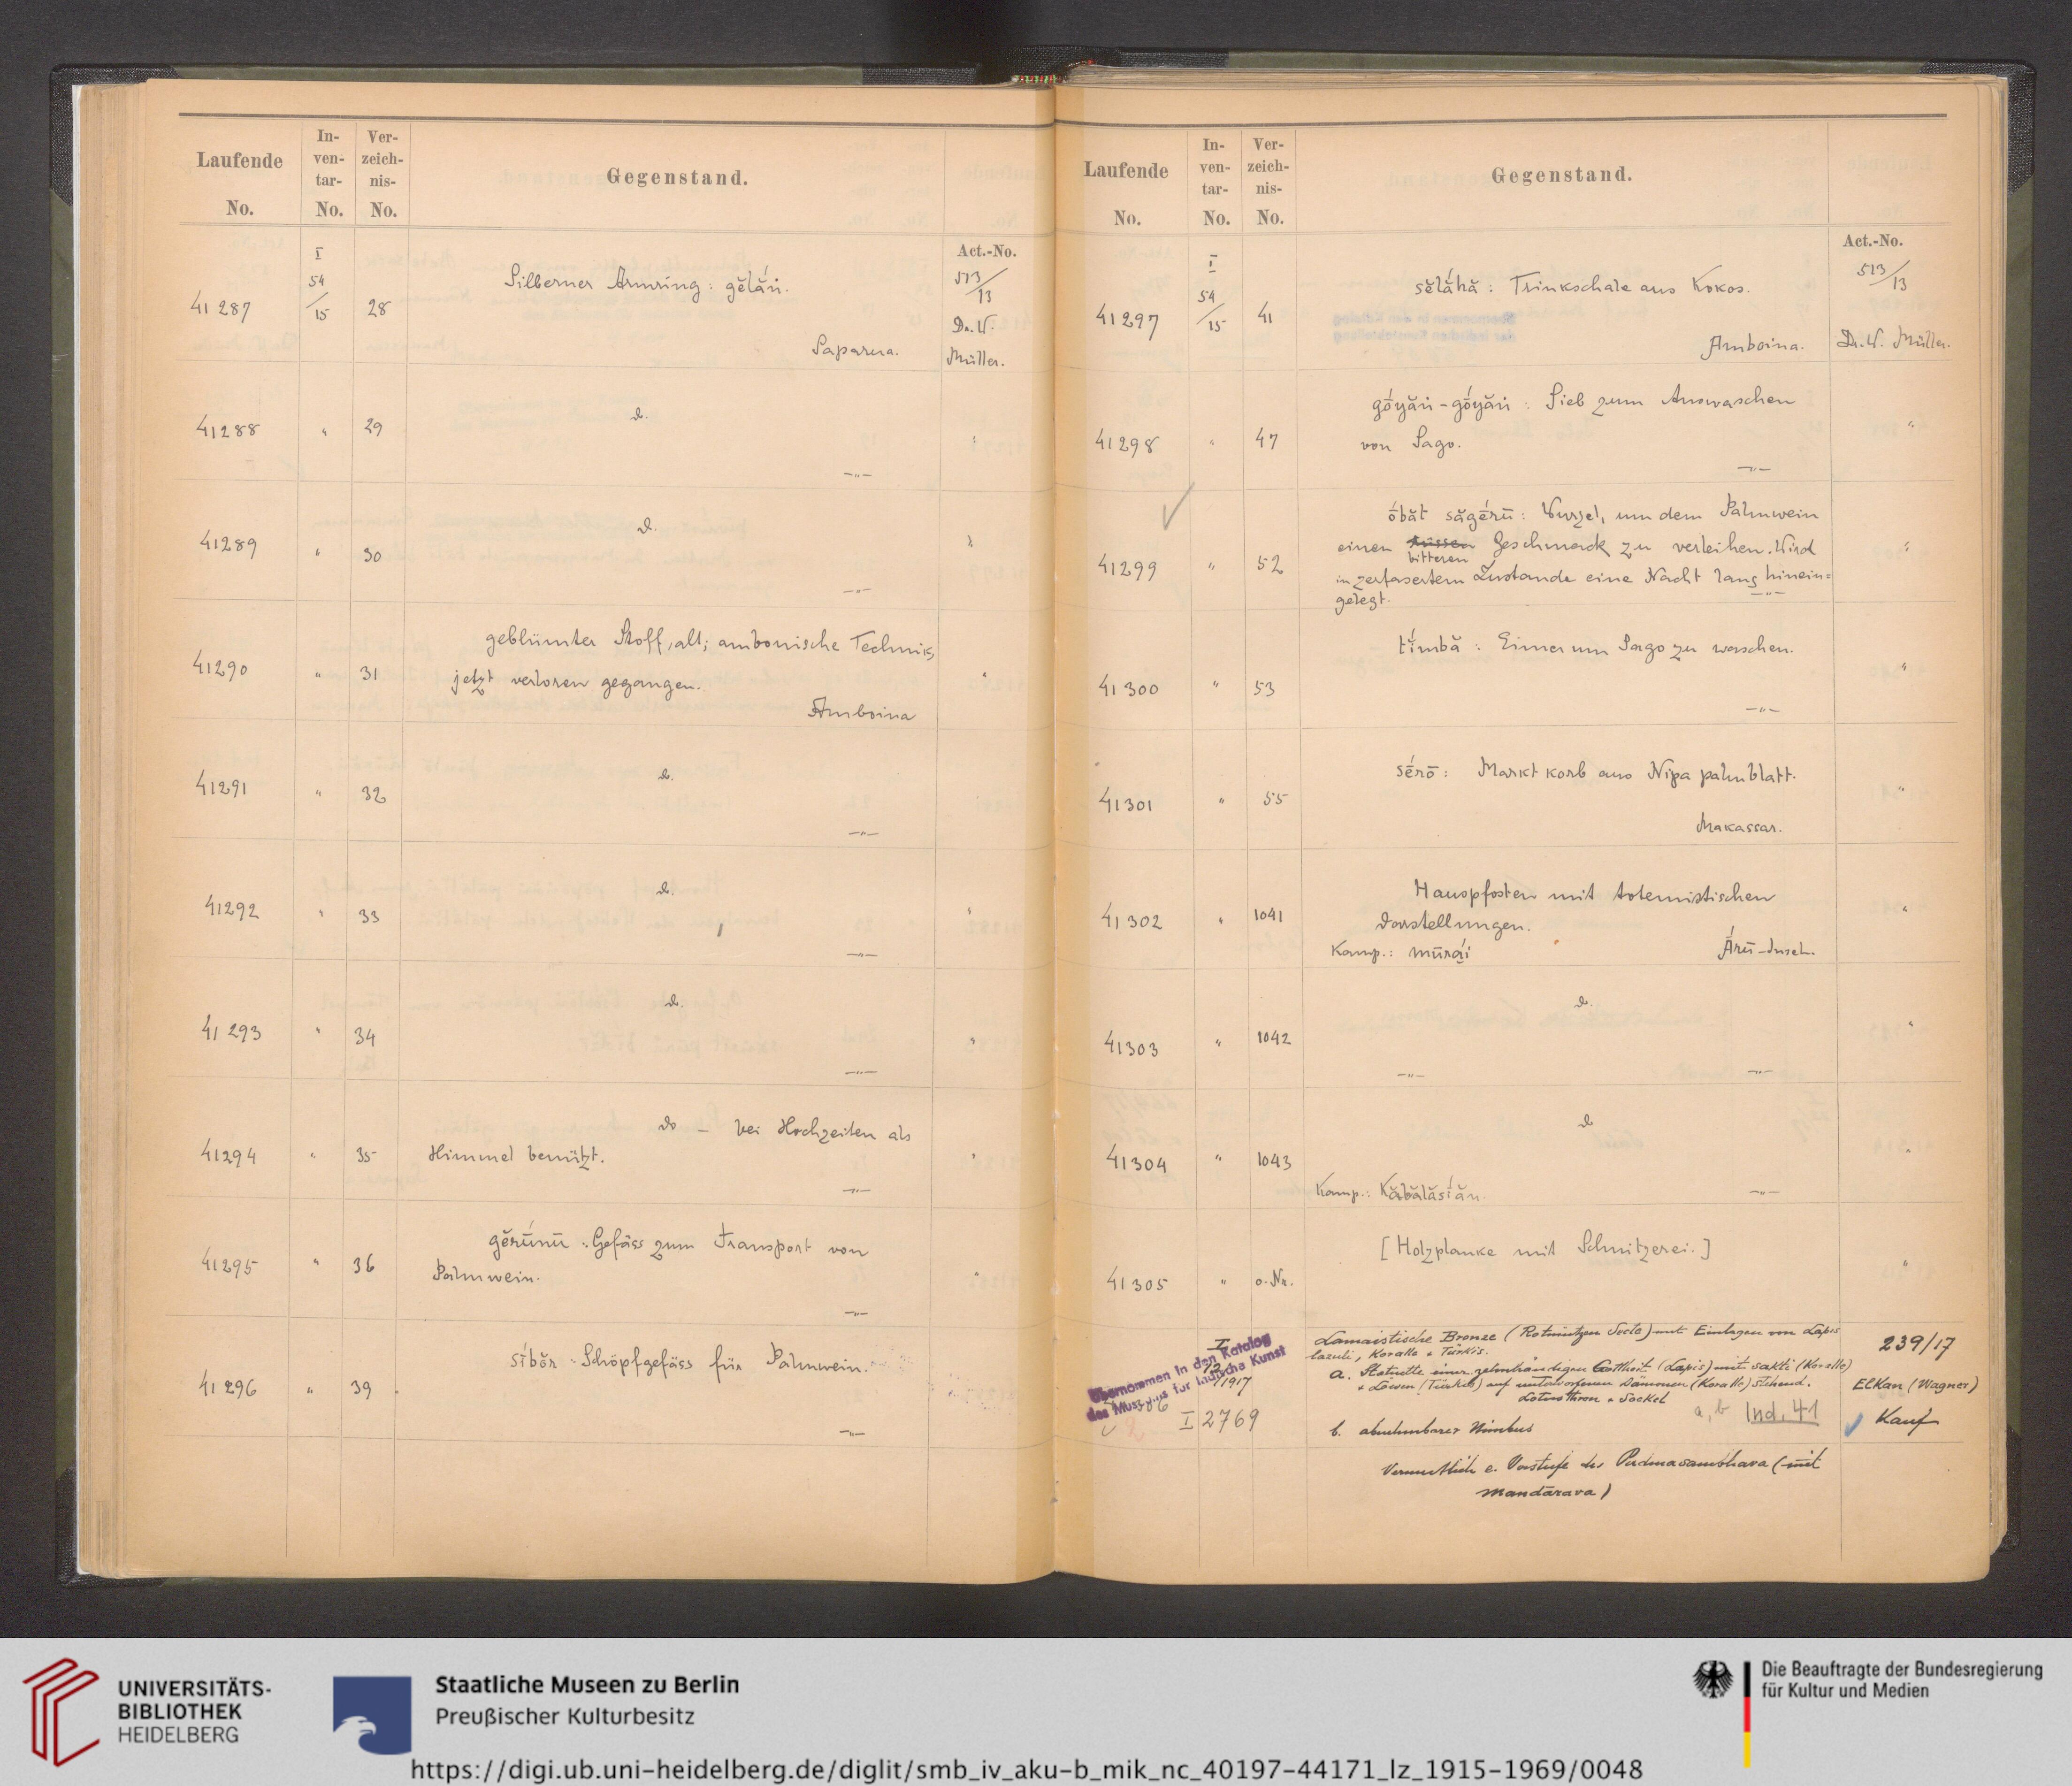 Laufende No.
In-ven-tar-No.
Ver-zeich-nis-No.
Gegenstand.
Act.-No.
41287 I 54/15 28 Silberner Armring: gĕlā́ṅ. 513/13
Saparua. Dr. W. Müller.
41288 " 29 do. "
—"—
41289 " 30 do. "
—"—
41290 " 31 geblümter Stoff, alt; ambonische Technik, "
jetzt verloren gegangen.
Amboina
41291 " 32 do.
—"—
41292 " 33 do. "
—"—
41293 " 34 do. "
—"—
41294 " 35 do – bei Hochzeiten als "
Himmel benützt.
—"—
41295 " 36 gĕrū́nū: Gefäss zum Transport von "
Palmwein.
—"—
41296 " 39 síbŏr: Schöpfgefäss für Palmwein.
—"—
Laufende No.
In-ven-tar-No.
Ver-zeich-nis-No.
Gegenstand.
Act.-No.
41297 I 54/15 41 sĕlā́hă: Trinkschale aus Kokos. 513/13
Amboina. Dr. W. Müller.
41298 " 47 gṓyăṅ-gṓyăṅ: Sieb zum Auswaschen "
von Sago.
—"—
41299 " 52 ṓbăt săgḗrū: Wurzel, um dem Palmwein
einen süssen Geschmack zu verleihen. Wird "
bitteren
in zerfasertem Zustande eine Nacht lang hinein=
gelegt. —"—
41300 " 53 tī́mbă: Eimer um Sago zu waschen. "
—"—
41301 " 55 sḗrō: Marktkorb aus Nipapalmblatt. "
Makassar.
41302 " 1041 Hauspfosten mit totemistischen "
Darstellungen.
Kamp.: mūrai Ārū-Inseln.
41303 " 1042 do. "
—"— —"—
41304 " 1043 do "
Kamp.: Kăbălăsíăn. —"—
41305 " o. Nr. [Holzplanke mit Schnitzerei.] "
Übernommen in den Katalog
des Museums für Indische Kunst
I 12/1917 Lamaistische Bronze (Rotmützen Secte) mit Einlagen von Lapis 239/17
lazuli, Koralle u Türkis.
a. Statuette einer zehnhändigen Gottheit (Lapis) mit sakti (Koralle)
u Löwen (Türkis) auf unterworfenen Dämonen (Koralle) stehend. Elkan (Wagner)
Lotusthron u Sockel
a, b Ind. 41 Kauf
I 2769 b. abnehmbarer Nimbus
Vermutlich e. Vorstufe des Padmasambhava (mit
mandārava)
UNIVERSITÄTS-
BIBLIOTHEK
HEIDELBERG
Staatliche Museen zu Berlin
Preußischer Kulturbesitz
Die Beauftragte der Bundesregierung
für Kultur und Medien
https://digi.ub.uni-heidelberg.de/diglit/smb_iv_aku-b_mik_nc_40197-44171_lz_1915-1969/0048